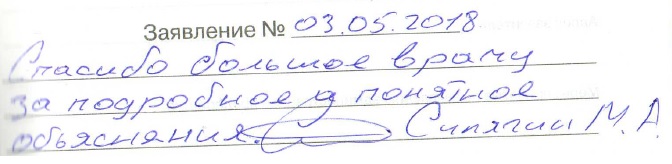 Заявление № 03.05.2018
Спасибо большое врачу
за подробное и понятное
обьяснания. Сипягин М.А.